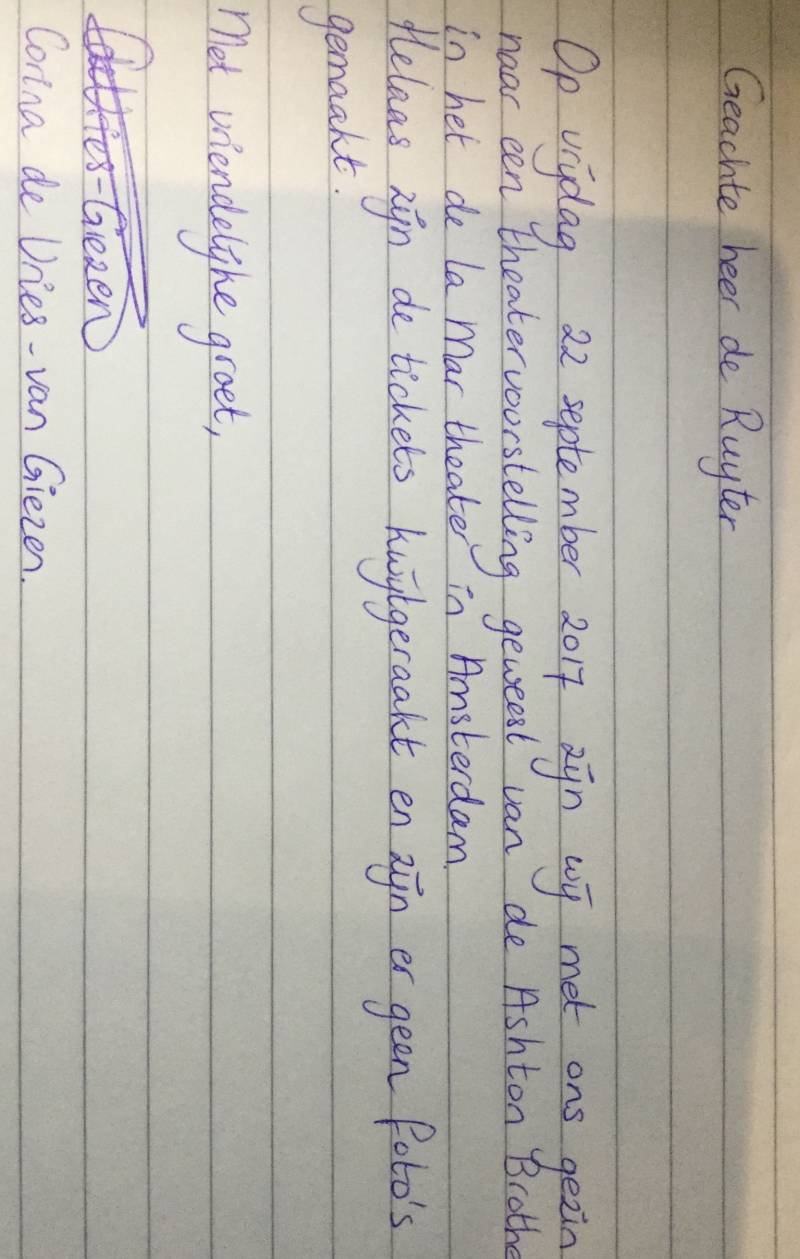 Geachte heer de Ruyter
Op vrijdag 22 september 2017 zijn wij met ons gezin
naar een theatervoorstelling geweest van de Ashton Brothe
in het de la Mar theater in Amsterdam.
Helaas zijn de tickets kwijtgeraakt en zijn er geen foto's
gemaakt.
Met vriendelijke groet,
Corina de Vries - van Giezen.